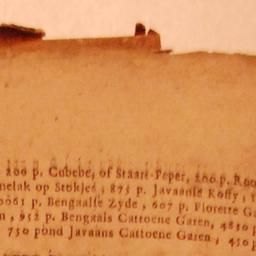 200 p. Cubebe, of Staart-Peper, 200 p. Roo
nelak op Stokjes, 875 p. Javaanse Koffy, 1
0061 p. Bengaalse Zyde, 607 p. Florette Ga
n, 952 p. Bengaals Cattoene Garen, 4810 p
750 pond Javaans Cattoene Garen, 450 p